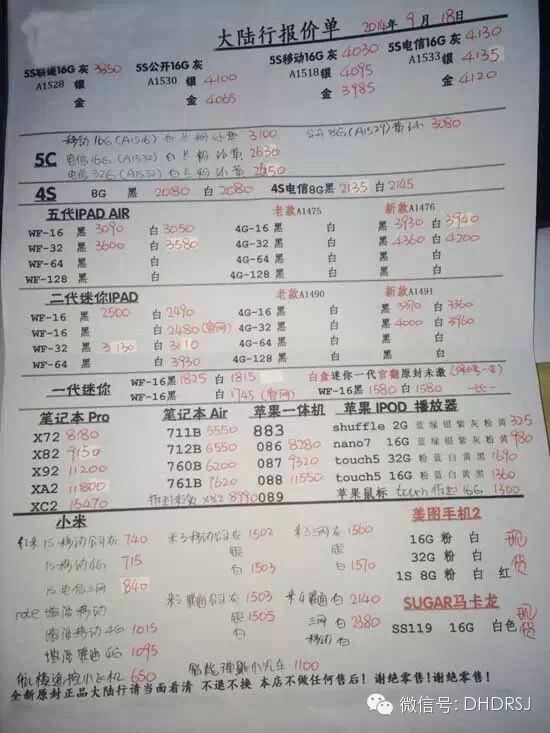 大陆行报价单 2014年9月18日
5S联通16G 灰 3850 5S公开16G 灰 5S移动16G 灰 4030 5S电信16G 灰 4130
A1528 银 A1530 银 4100 A1518 银 4095 A1533 银 4135
金 金 4065 金 3985 金 4120
移动16G(A1516) 白 3100 公开8G(A1529) 3080
5C 电信16G(A1532) 白 2630
电信32G(A1532) 白 2450
4S 8G 黑 2080 白 2080 4S电信8G黑 2135 白 2145
五代IPAD AIR 老款A1475 新款A1476
WF-16 黑 3090 白 3050 4G-16 黑 白 黑 3930 白 3940
WF-32 黑 3600 白 3580 4G-32 黑 白 黑 4360 白 4200
WF-64 黑 白 4G-64 黑 白 黑 白
WF-128 黑 白 4G-128 黑 白 黑 白
二代迷你IPAD 老款A1490 新款A1491
WF-16 黑 2500 白 2490 4G-16 黑 白 黑 白 3360
WF-16 白 2480(官网) 4G-32 黑 白 黑 4000 白 3960
WF-32 黑 3130 白 3110 4G-64 黑 白 黑 白
WF-64 黑 白 3930 4G-128 黑 白 黑 白
一代迷你 WF-16黑 1825 白 1815 白盒迷你一代官翻原封未激
WF-16黑 白 1745(官网) WF-16黑 1580 白 1580
笔记本 Pro 笔记本 Air 苹果一体机 苹果 IPOD 播放器
X72 8180 711B 5550 883 shuffle 2G 蓝绿银紫灰粉黄 325
X82 9150 712B 6550 086 8280 nano7 16G 蓝绿银紫灰粉黄 980
X92 11200 760B 6200 087 9320 touch5 32G 粉蓝白黄黑 1690
XA2 11800 761B 7620 088 11550 touch5 16G 粉蓝白黄黑 1360
XC2 15470 X82 8990 089 苹果鼠标 16G 1300
小米 美图手机2
红米1S移动公司灰 740 米3移动公司灰 1502 米3三网灰 1560 16G 粉 白 现
1S移动4G 715 银 银 32G 粉 白 货
1S电信三网 840 白 1503 白 1570 1S 8G 粉 白 红
note 增强移动 米3联通公司灰 1503 米4联通白 2140 SUGAR马卡龙
增强移动4G 1015 银 1505 三网白 2380 SS119 16G 白色 现货
增强联通4G 1095 白 移动白
遥控小飞机 650 1100
全新原封正品大陆行请当面看清 不退不换 本店不做任何售后！谢绝零售!谢绝零售！
微信号: DHDRSJ